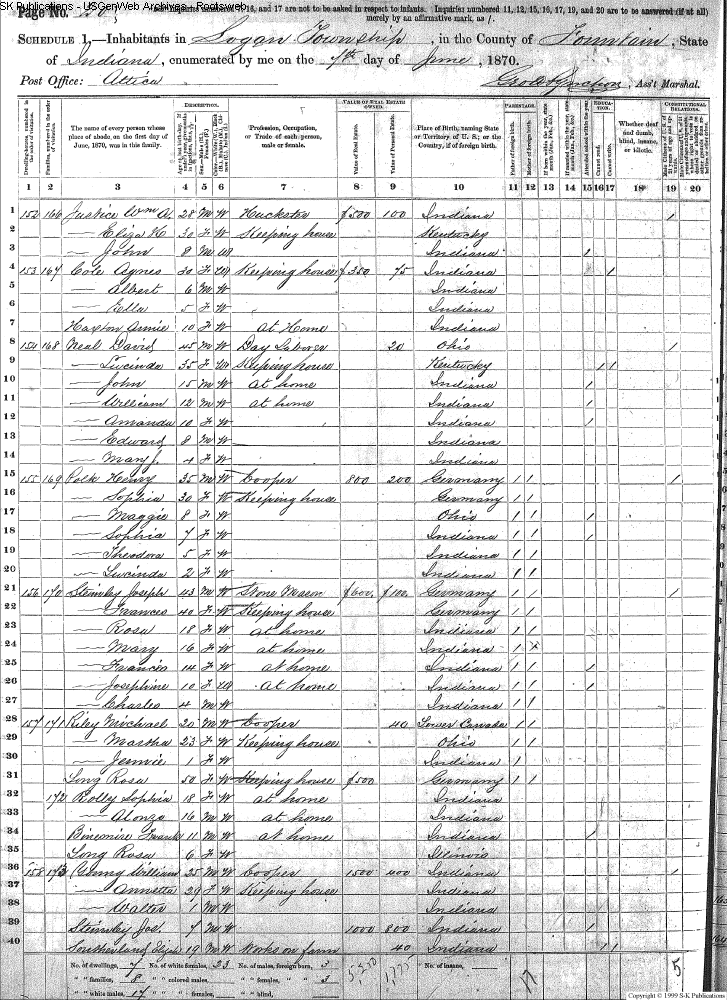 SK Publications - USGenWeb Archives - Rootsweb
Page No. 20
merely by an affirmative mark, as /.
SCHEDULE 1.—Inhabitants in Logan Township, in the County of Fountain, State
of Indiana, enumerated by me on the 7th day of June, 1870.
Post Office: Attica
, Ass't Marshal.
DESCRIPTION. VALUE OF REAL ESTATE OWNED. PARENTAGE. EDUCATION. CONSTITUTIONAL RELATIONS.
The name of every person whose place of abode on the first day of June, 1870, was in this family.
Profession, Occupation, or Trade of each person, male or female.
Value of Real Estate. Value of Personal Estate.
Place of Birth, naming State or Territory of U. S.; or the Country, if of foreign birth.
Father of foreign birth. Mother of foreign birth.
Attended school within the year. Cannot read. Cannot write.
Whether deaf and dumb, blind, insane, or idiotic.
1 2 3 4 5 6 7 8 9 10 11 12 13 14 15 16 17 18 19 20
1 152 166 Justice Wm A. 28 M W Huckster $500 100 Indiana /
2 — Eliza H 30 F W Keeping house Kentucky
3 — John 8 M W Indiana /
4 153 167 Cole Agnes 30 F W Keeping house $350 75 Indiana /
5 — Albert 6 M W Indiana
6 — Ella 5 F W Indiana
7 Haxton Annie 10 F W At Home Indiana
8 154 168 Neal David 45 M W Day Laborer 20 Ohio /
9 — Lucinda 35 F W Keeping house Kentucky / /
10 — John 15 M W At home Indiana /
11 — William 12 M W at home Indiana /
12 — Amanda 10 F W Indiana /
13 — Edward 8 M W Indiana
14 — Mary J. 4 F W Indiana
15 155 169 Polk Henry 35 M W Cooper 800 200 Germany / / /
16 — Sophia 30 F W Keeping house Germany / /
17 — Maggie 8 F W Ohio / / /
18 — Sophia 7 F W Indiana / / /
19 — Theodora 5 F W Indiana / /
20 — Lucinda 2 F W Indiana / /
21 156 170 Steimley Joseph 43 M W Stone Mason $600. $100. Germany / / /
22 — Frances 40 F W Keeping house Germany / /
23 — Rosa 18 F W at home Indiana / /
24 — Mary 16 F W at home Indiana / /
25 — Francis 14 F W at home Indiana / / /
26 — Josephine 10 F W at home Indiana / / /
27 — Charles 4 M W Indiana / /
28 157 171 Riley Michael 20 M W Cooper 40 Lower Canada / /
29 — Martha 23 F W Keeping house Ohio / /
30 — Jennie 1 F W Indiana /
31 Long Rosa 50 F W Keeping house $500 Germany / /
172 Rolly Sophia 18 F W at home Indiana
33 — Alonzo 16 M W at home Indiana
34 Frank 11 M W at home Indiana /
35 Long Rosa 6 F W Illinois
36 158 173 William 25 M W Cooper 1500 400 Indiana /
37 — Annetta 29 F W Keeping house Indiana
38 — Walter 1 M W Indiana
39 Steimley Jos. 7 M W 1000 800 Indiana /
40 Southerland 19 M W Works on farm 40 Indiana / /
No. of dwellings, 7 No. of white females, 23 No. of males, foreign born, 3 No. of insane,
" " families, 8 " " colored males, " " females, " " 3
" " white males, 17 " " females, " " blind,
Copyright © 1999 S-K Publications